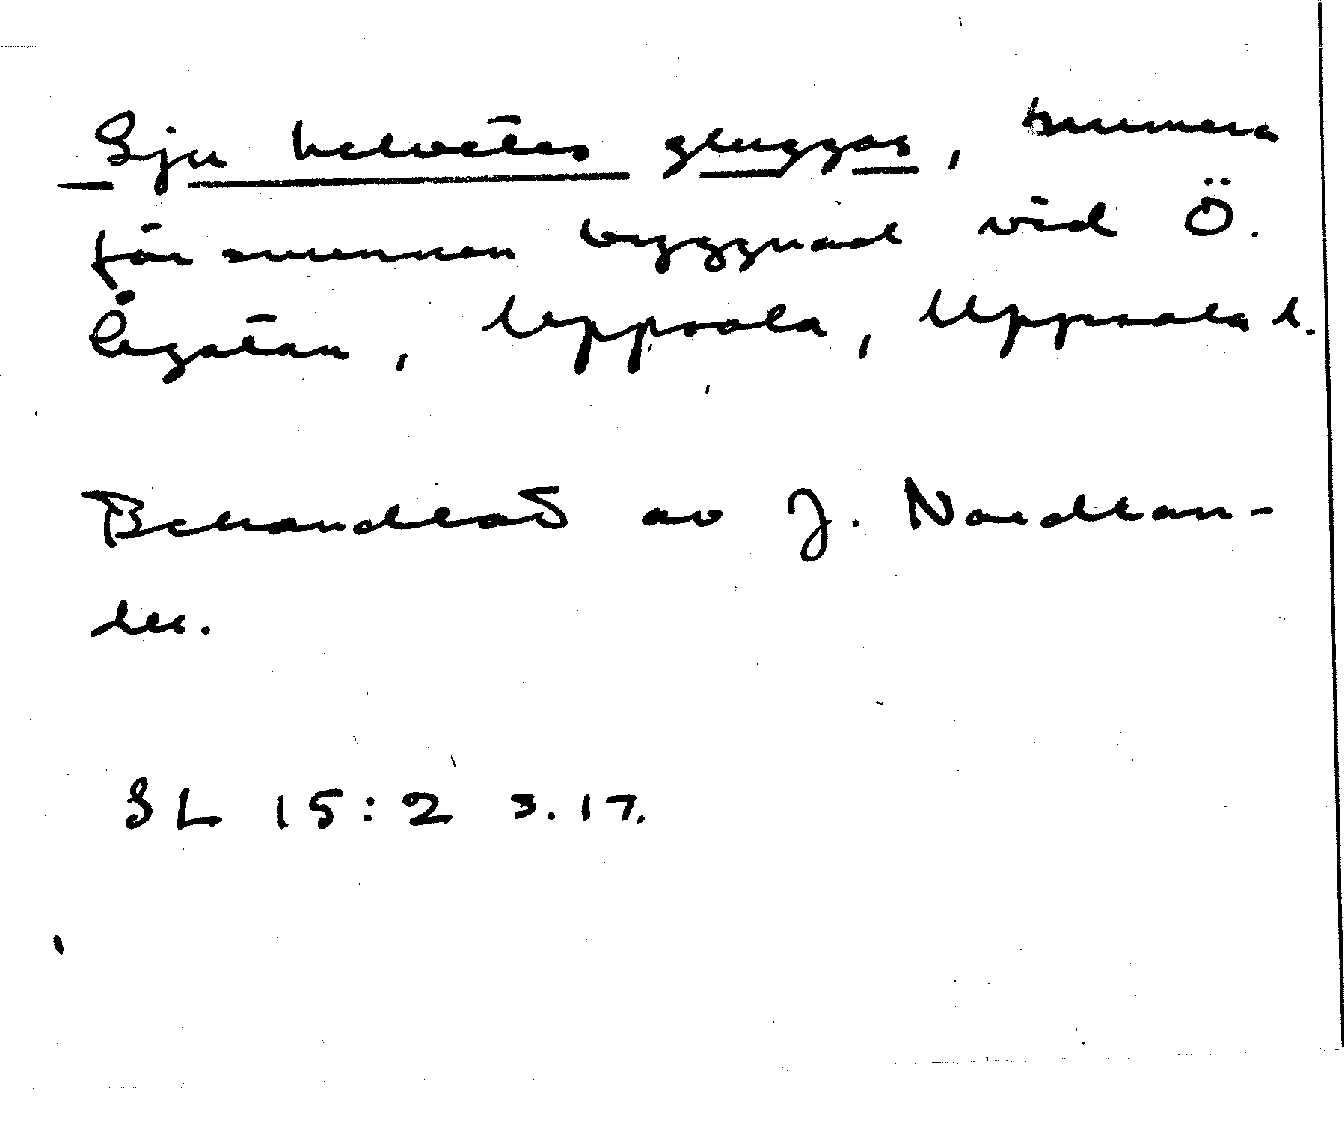 Sju helvetes gluggar, numera
försvunnen byggnad vid Ö.
Ågatan, Uppsala, Uppsala l.
Behandlad av J. Nordlan-
der.
SL 15:2 s. 17.